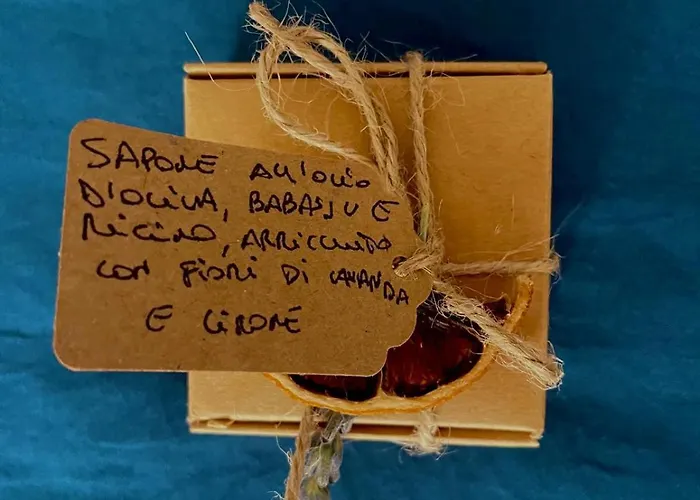 SAPONE ALL'OLIO
D'OLIVA, BABASSU E
RICINO, ARRICCHITO
CON FIORI DI LAVANDA
E LIMONE